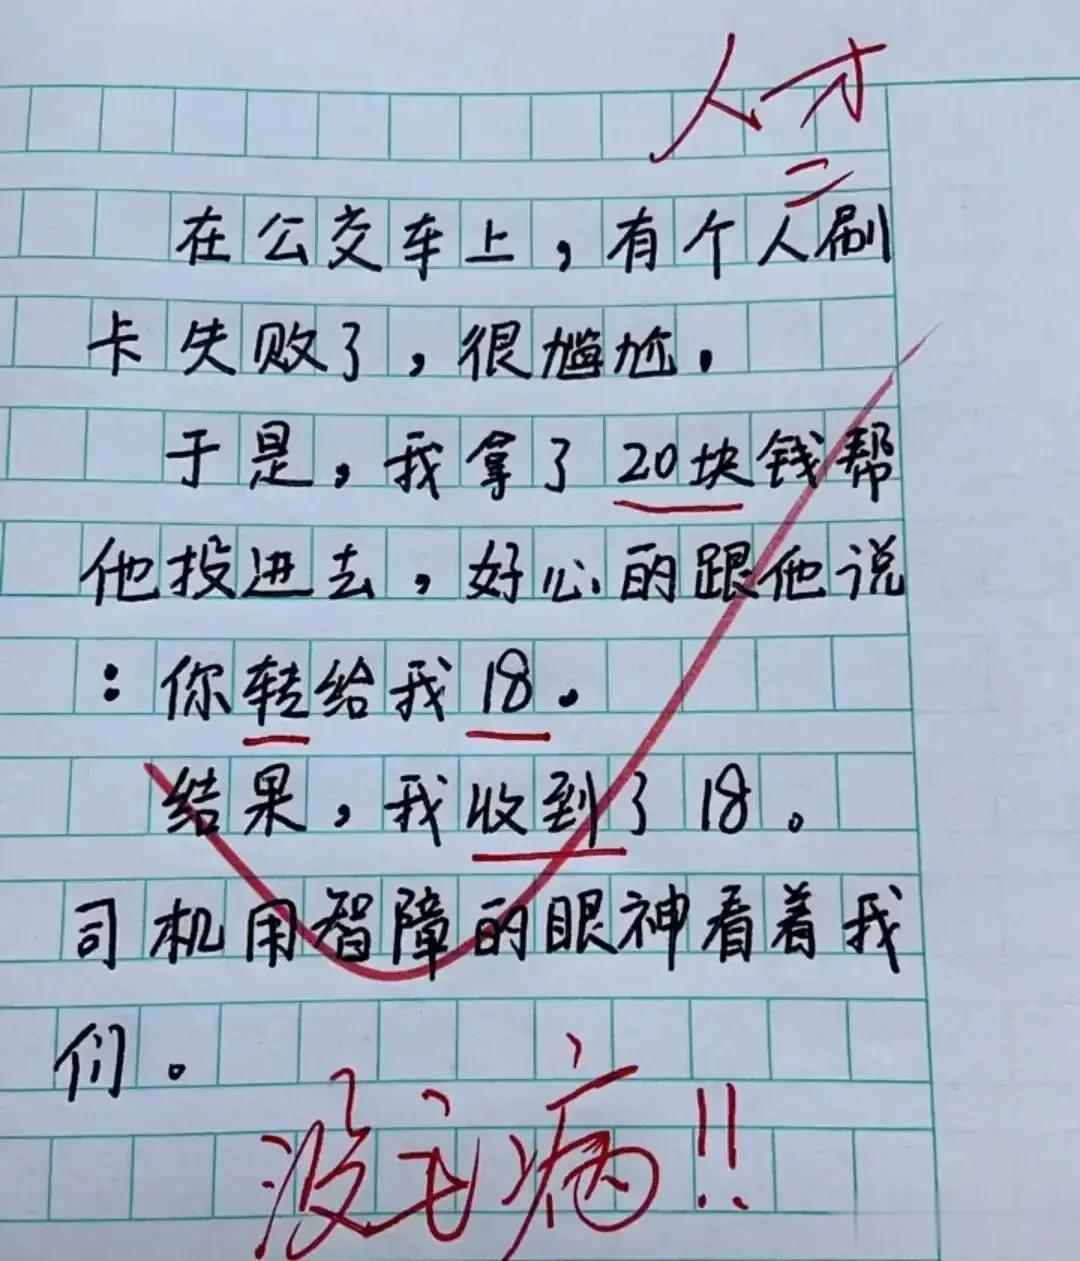 人才
在公交车上，有个人刷
卡失败了，很尴尬.
于是，我拿了20块钱帮
他投进去，好心的跟他说
：你转给我18.
结果，我收到了18。
司机用智障的眼神看着我
们。
没毛病!!